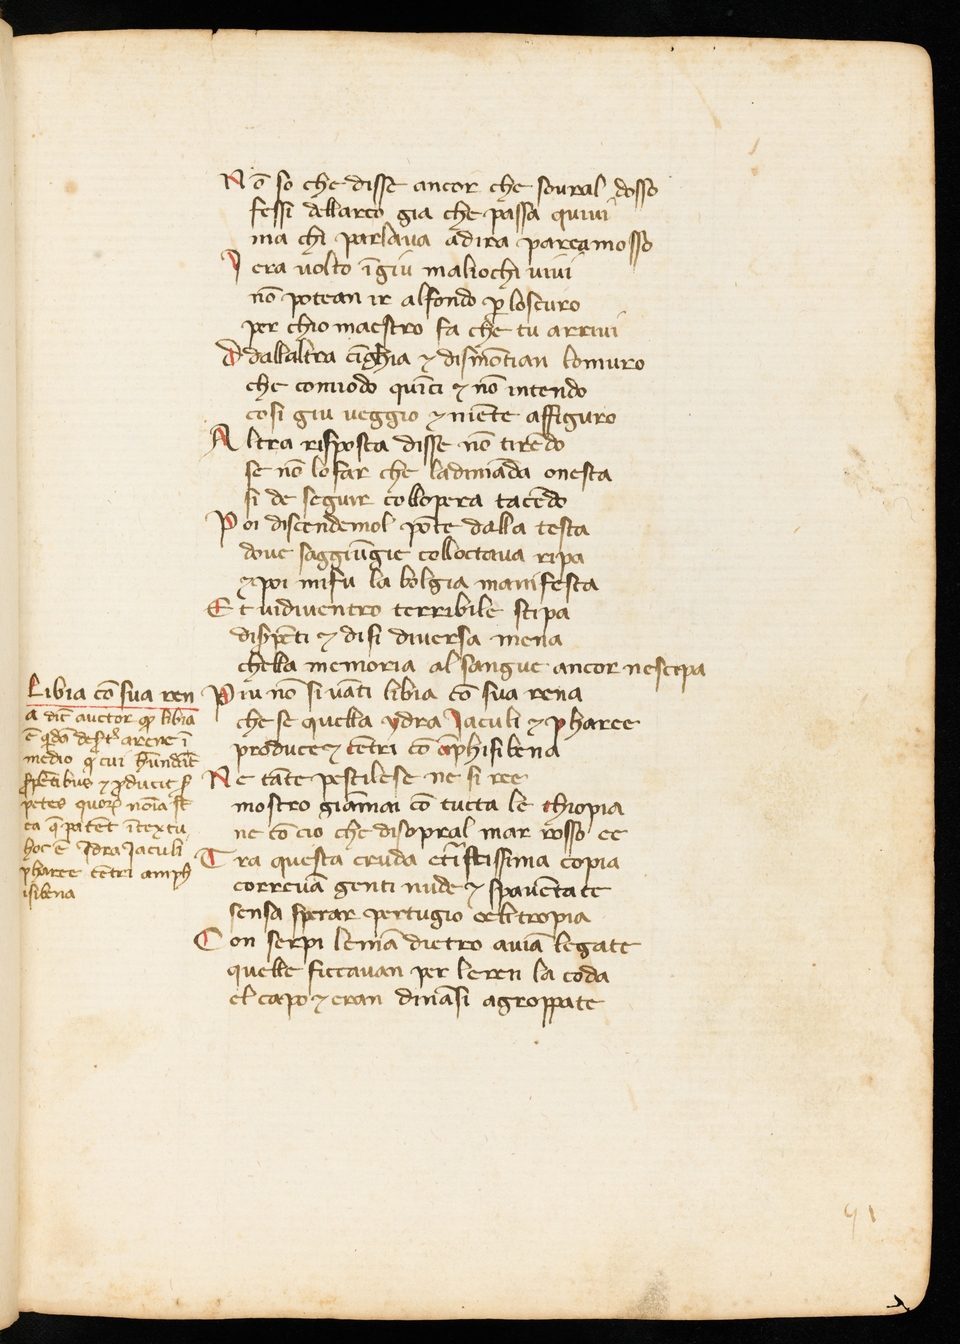 Nō so che disse ancor che soural dosso
fessi dellarco gia che passa quiui
ma chi parlaua adira parea mosso
I era uolto īgiu maliochi uiui
nō potean ir alfondo ꝑ loscuro
per chio maestro fa che tu arriui
D dallaltra cīghia ⁊ dismōtian lomuro
che comiodo quīci ⁊ nō intendo
cosi giu ueggio ⁊ niēte affiguro
Altra risposta disse nō tirēdo
se nō lo far che ladimāda onesta
si de seguir collopera tacēdo
Poi discendemol pōte dalla testa
doue saggiūgie collottaua ripa
⁊ poi mifu la bolgia manifesta
Et uidiuentro terribile stipa
diserpēti ⁊ disi diuersa mena
chella memoria al sangue ancor nescipa
Piu nō si uāti libia cō sua rena
che se quella ydra Jaculi ⁊ pharee
produce ⁊ cētri cō āphisibena
Ne tāte pestilese ne si ree
mostro giāmai cō tucta le thiopia
ne cō cio che disopral mar rosso ee
Tra questa cruda et īstissima copia
correuā genti nude ⁊ spauētate
sensa sperar pertugio o elitropia
Con serpi le mā dietro auiā legate
quelle ficcauan per le ren la coda
el capo ⁊ eran dināsi agroppate
Libia cō sua ren
a dic̄ auctor ꝙ libia
ē arene ī
medio cui
⁊ ꝓducit s̄
petes quoꝝ noīa st̄
ea patēt ītextu
hoc ē Idra Jaculi
pharee cētri amph
isibena
91